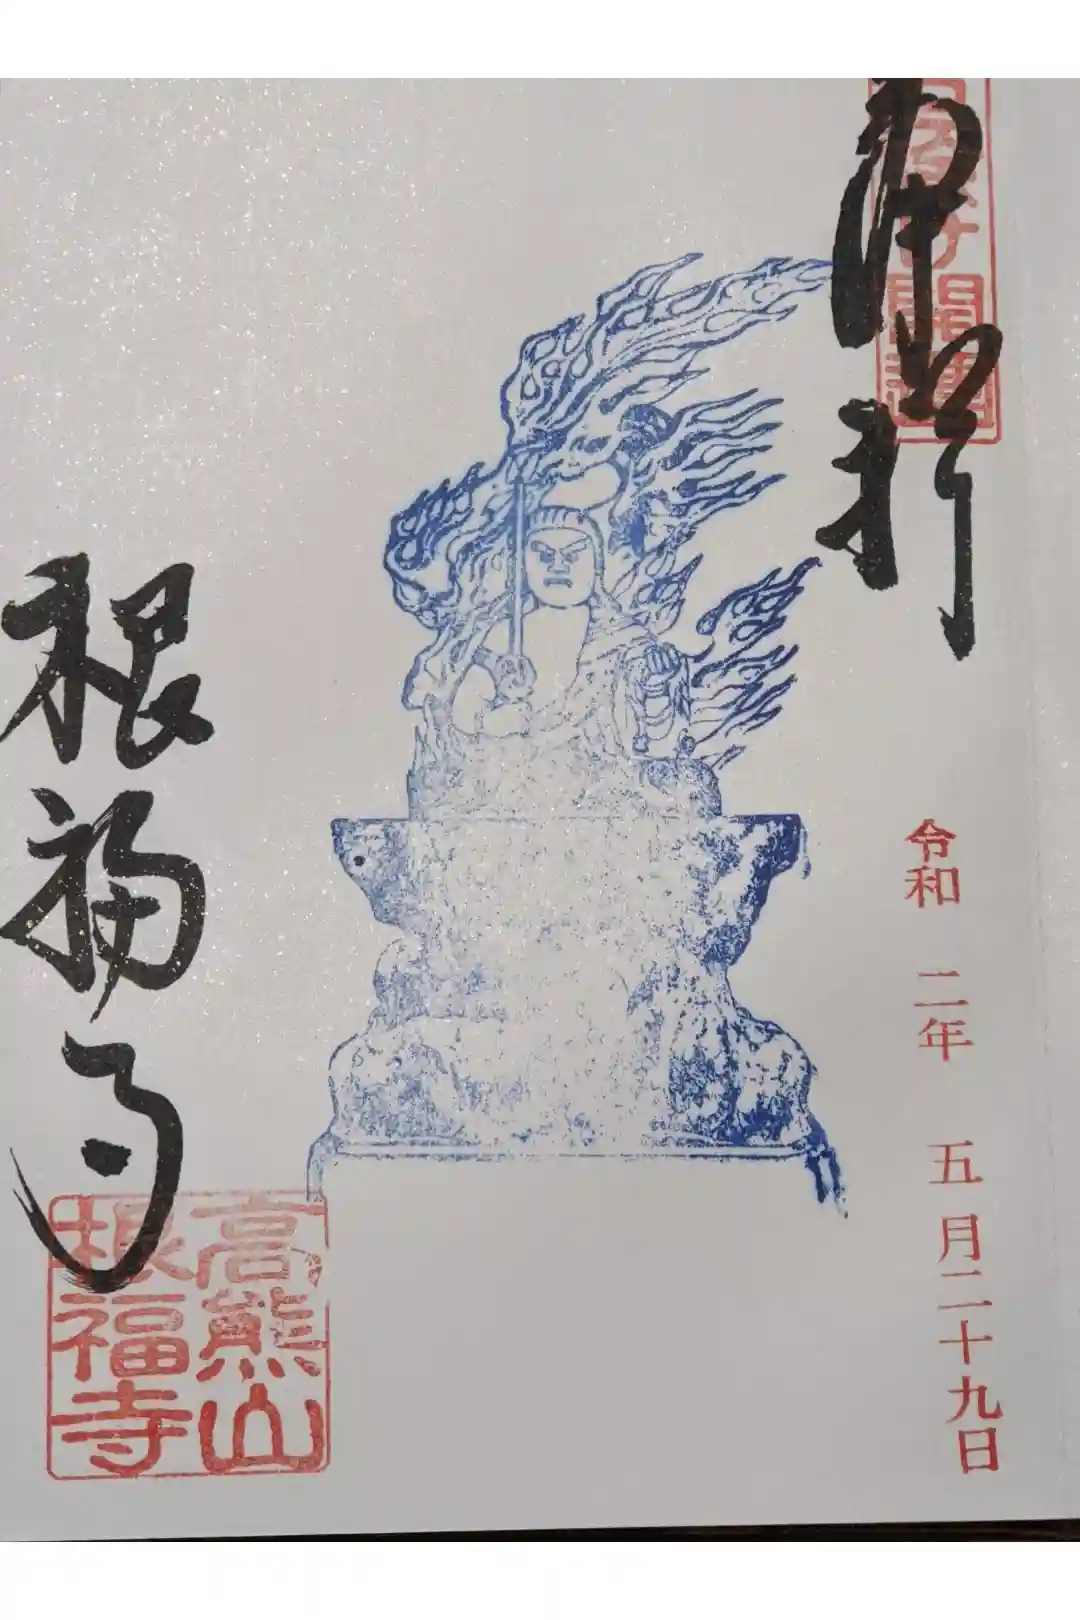 奉拝
令和 二年 五月二十九日
根福寺
高熊山
根福寺